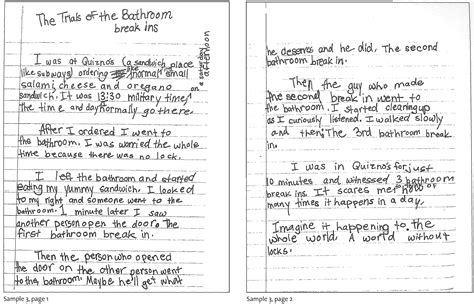 The Trials of the Bathroom
break ins
I was at Quizno's (a sandwich place
like subway) ordering the normal small
salami, cheese and oregano
sandwich. It was 13:30 military time,
the time and day I normally go there.
on a saturday
afternoon
After I ordered I went to
the bathroom. I was worried the whole
time because there was no lock.
I left the bathroom and started
eating my yummy sandwich. I looked
to my right and someone went to the
bathroom. 1 minute later I saw
another person open the door. The
first bathroom break in.
Then the person who opened
the door on the other person went
to the bathroom. Maybe he'll get what
Sample 3, page 1
he deserves and he did. The second
bathroom break in.
Then the guy who made
the second break in went to
the bathroom. I started cleaning up
as I curiously listened. I walked slowly
and then, The 3rd bathroom break
in.
I was in Quizno's for just
10 minutes and witnessed 3 bathroom
break ins. It scares me how
many times it happens in a day.
Imagine it happening to the
whole world. A world without
locks.
Sample 3, page 2